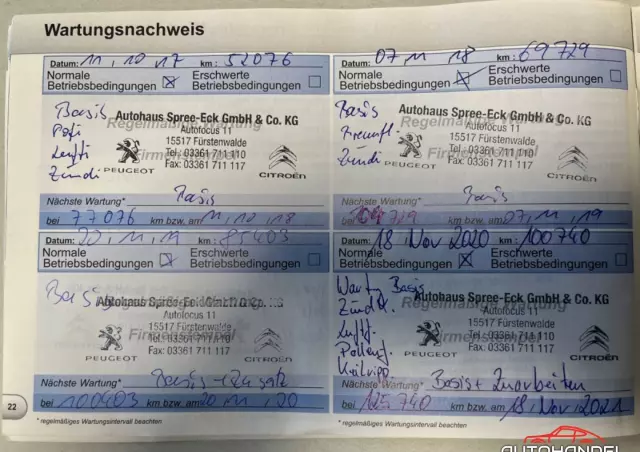 Wartungsnachweis
Datum: 11, 10 17 km: 52076
Normale Betriebsbedingungen ☒ Erschwerte Betriebsbedingungen ☐
Basis
Pofi
Lufti
Zündi
Regelmäßige Wartung
Autohaus Spree-Eck GmbH & Co. KG
Autofocus 11
15517 Fürstenwalde
Tel.: 03361 711 110
Fax: 03361 711 117
Firmenstempel
PEUGEOT CITROËN
Nächste Wartung* Basis
bei 77076 km bzw. am 11, 10, 18
Datum: 07 11 18 km: 69729
Normale Betriebsbedingungen ☒ Erschwerte Betriebsbedingungen ☐
Basis
Zündi
Regelmäßige Wartung
Autohaus Spree-Eck GmbH & Co. KG
Autofocus 11
15517 Fürstenwalde
Tel.: 03361 711 110
Fax: 03361 711 117
Firmenstempel
PEUGEOT CITROËN
Nächste Wartung* Basis
bei km bzw. am 07, 11, 19
Datum: 20, 11, 19 km: 85403
Normale Betriebsbedingungen ☒ Erschwerte Betriebsbedingungen ☐
Basis
Autohaus Spree-Eck GmbH & Co. KG
Autofocus 11
15517 Fürstenwalde
Tel.: 03361 711 110
Fax: 03361 711 117
Firmenstempel
PEUGEOT CITROËN
Nächste Wartung* Basis + Zusatz
bei 100403 km bzw. am 20 11, 20
18, Nov 2020 100740
Normale Betriebsbedingungen ☒ Erschwerte Betriebsbedingungen ☐
Wartg Basis
Zündk.
Luftf.
Pollenf.
Keilripp.
Autohaus Spree-Eck GmbH & Co. KG
Autofocus 11
15517 Fürstenwalde
Tel.: 03361 711 110
Fax: 03361 711 117
Firmenstempel
PEUGEOT CITROËN
Nächste Wartung* Basis + Zusarbeiten
bei 125740 km bzw. am 18, Nov, 2021
22
* regelmäßiges Wartungsintervall beachten
* regelmäßiges Wartungsintervall beachten
AUTOHANDEL